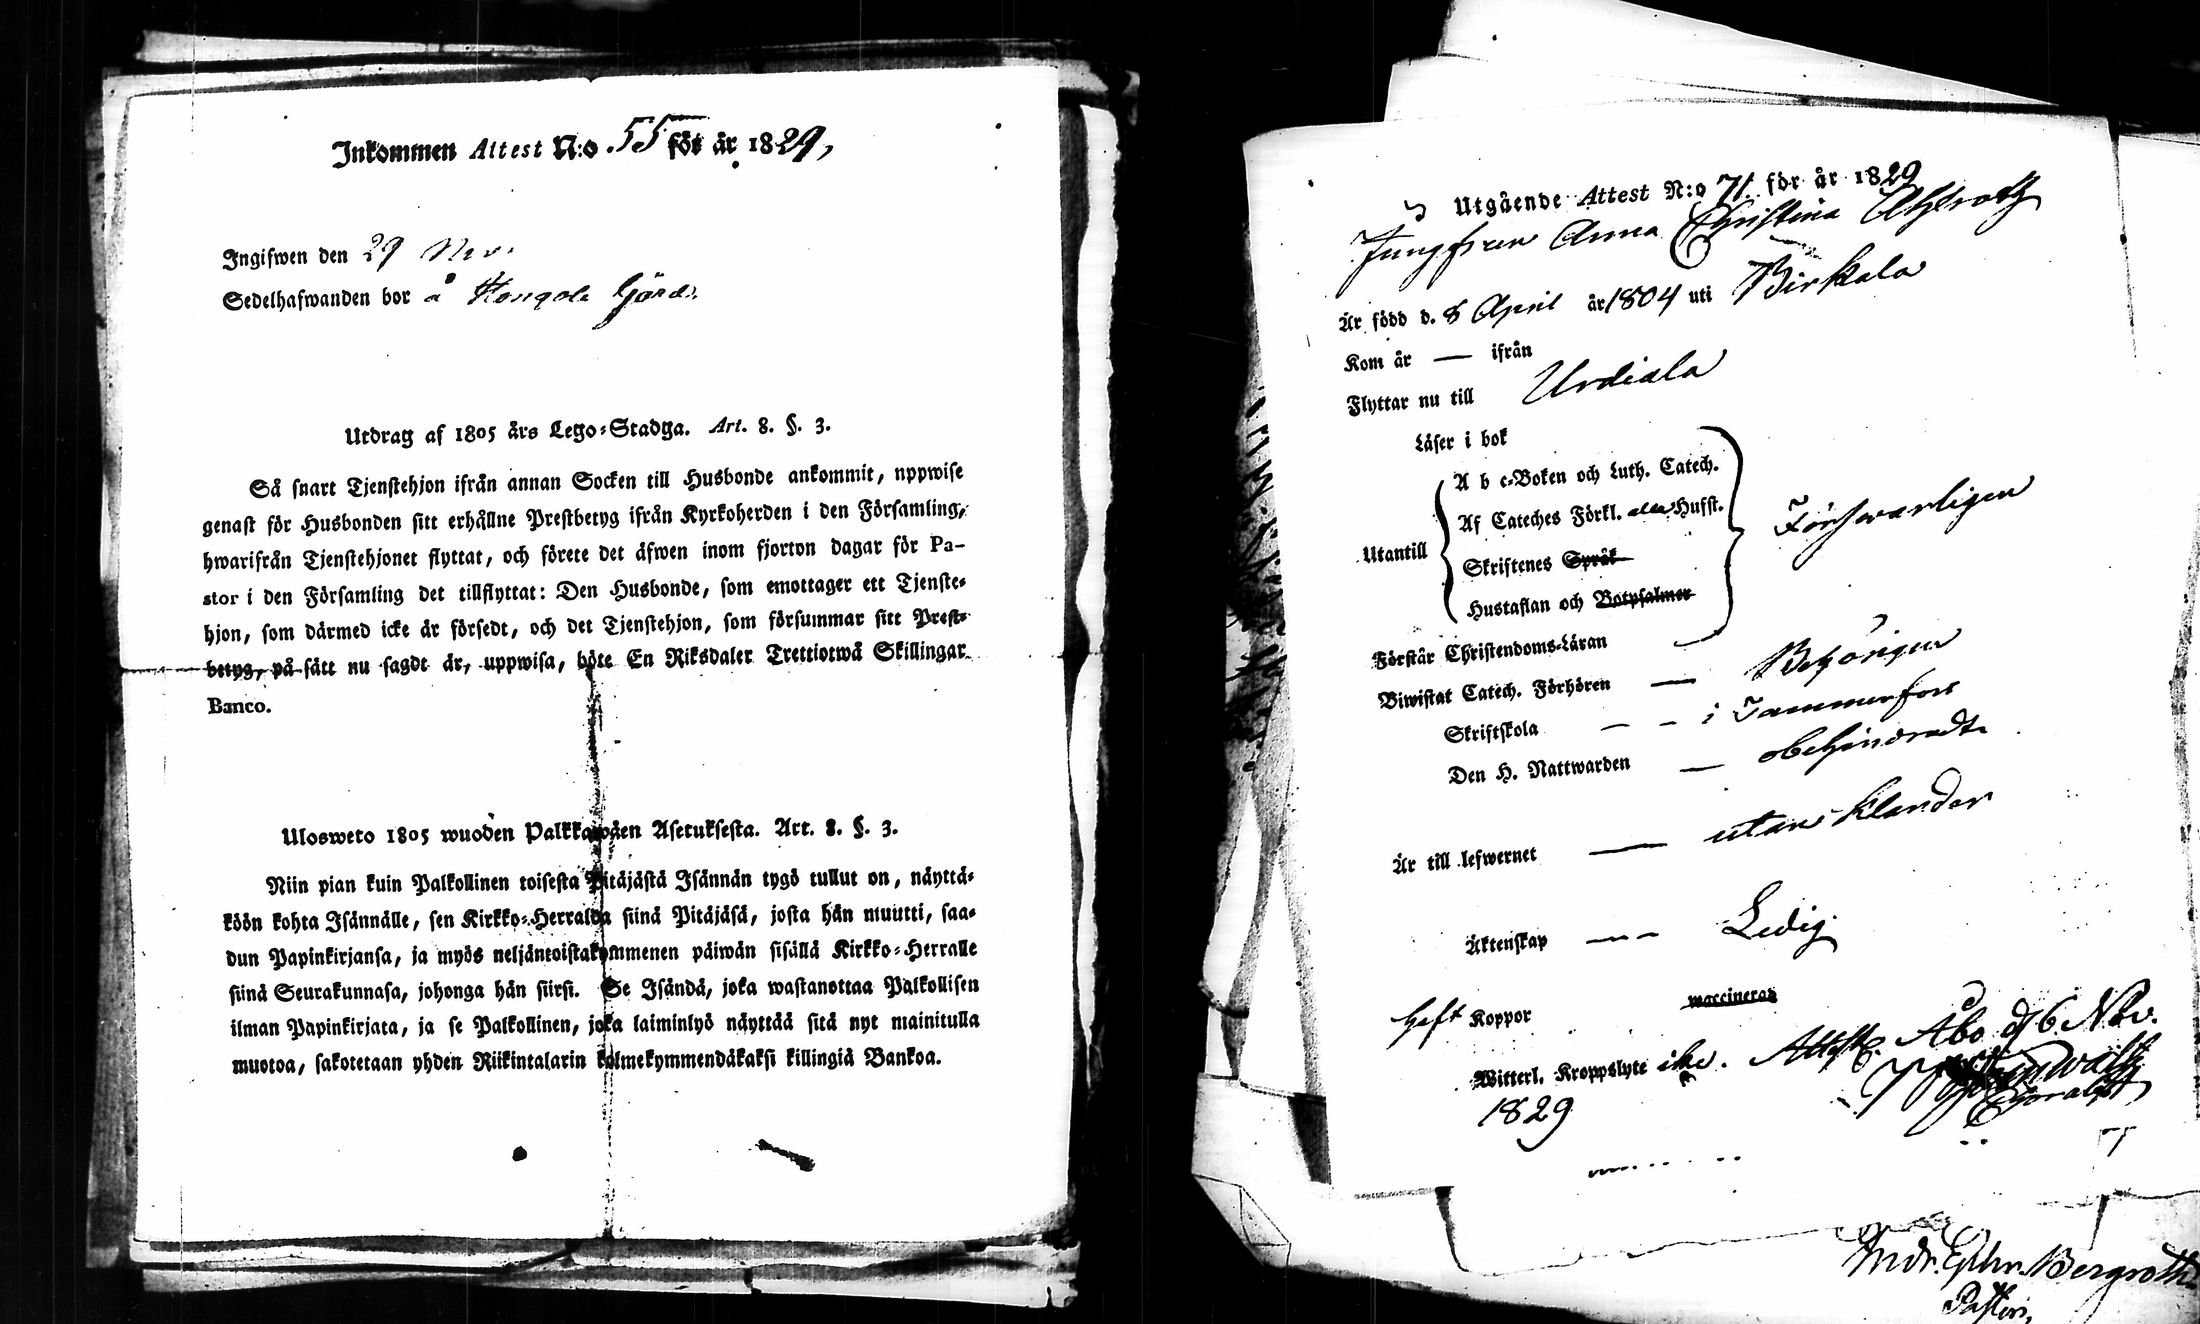 Inkommen Attest N:o 55 för år 1829,
Ingifwen den 29 Nov.
Sedelhafwanden bor å Gård.
Utdrag af 1805 års Lego-Stadga. Art. 8. §. 3.
Så snart Tjenstehjon ifrån annan Socken till Husbonde ankommit, uppwise
genast för Husbonden sitt erhållne Prestbetyg ifrån Kyrkoherden i den Församling,
hwarifrån Tjenstehjonet flyttat, och förete det äfwen inom fjorton dagar för Pa-
stor i den Församling det tillflyttat: Den Husbonde, som emottager ett Tjenste-
hjon, som därmed icke är försedt, och det Tjenstehjon, som försummar sitt Prest-
betyg, på sätt nu sagdt är, uppwisa, böte En Riksdaler Trettiotwå Skillingar
Banco.
Ulosweto 1805 wuoden Palkkawäen Asetuksesta. Art. 8. §. 3.
Niin pian kuin Palkollinen toisesta Pitäjästä Isännän tygö tullut on, näyttä-
köön kohta Isännälle, sen Kirkko-Herralda siinä Pitäjäsä, josta hän muutti, saa-
dun Papinkirjansa, ja myös neljäntoistakymmenen päiwän sisällä Kirkko-Herralle
siinä Seurakunnasa, johonga hän siirsi. Se Isändä, joka wastanottaa Palkollisen
ilman Papinkirjata, ja se Palkollinen, joka laiminlyö näyttää sitä nyt mainitulla
muotoa, sakotetaan yhden Riikintalarin kolmekymmendäkaksi killingiä Bankoa.
Utgående Attest N:o 71. för år 1829
Jungfrun Anna Christina Ahlroth
Är född d. 8 April år 1804 uti Birkala
Kom år — ifrån
Flyttar nu till Urdiala
Läser i bok
A b c-Boken och Luth. Catech.
Af Cateches Förkl. Hufst.
Utantill
Skriftenes Språk
Hustaflan och Botpsalmer
Förswarligen
Förstår Christendoms-Läran
Biwistat Catech. Förhören — Behörigen
Skriftskola — — i Tammerfors
Den H. Nattwarden — obehindradt
Är till lefwernet — utan klander
Äktenskap — — Ledig
haft Koppor waccinerad
Witterl. Kroppslyte icke. Attest. Åbo d 16 Nov.
1829
Bergroth
Pastor,